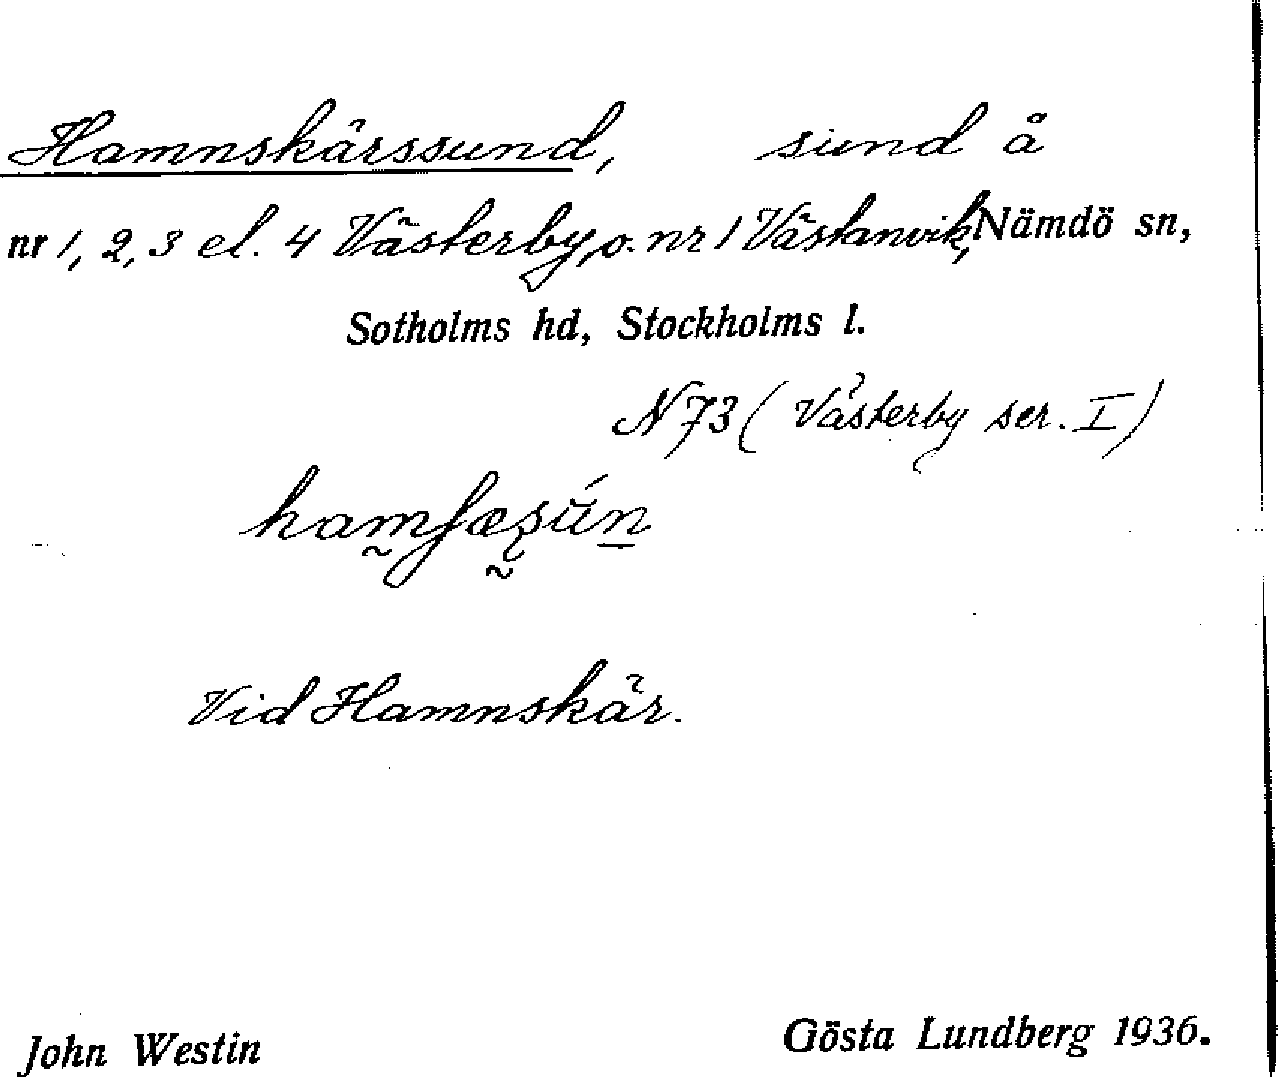 Hamnskärssund, sund å
nr 1, 2, 3 el. 4 Västerby, o. nr 1 Västanvik, Nämdö sn,
Sotholms hd, Stockholms l.
N 73 (Västerby ser. I)
Vid Hamnskär.
John Westin Gösta Lundberg 1936.